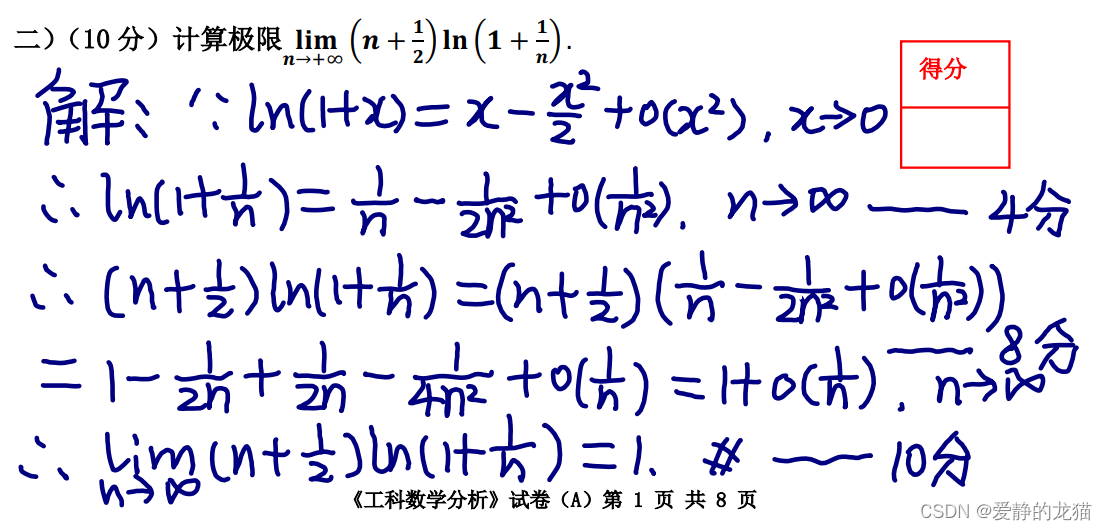 二)(10 分)计算极限 lim n→+∞ (n + 1/2) ln (1 + 1/n).
得分
解、∵ ln(1+x) = x - x²/2 + o(x²), x→0
∴ ln(1+1/n) = 1/n - 1/2n² + o(1/n²). n→∞ —— 4分
∴ (n+1/2)ln(1+1/n) = (n+1/2)(1/n - 1/2n² + o(1/n²))
—— 8分
= 1 - 1/2n + 1/2n - 1/4n² + o(1/n) = 1 + o(1/n), n→∞
∴ lim n→∞ (n+1/2)ln(1+1/n) = 1. # —— 10分
《工科数学分析》试卷(A)第 1 页 共 8 页
CSDN @爱静的龙猫